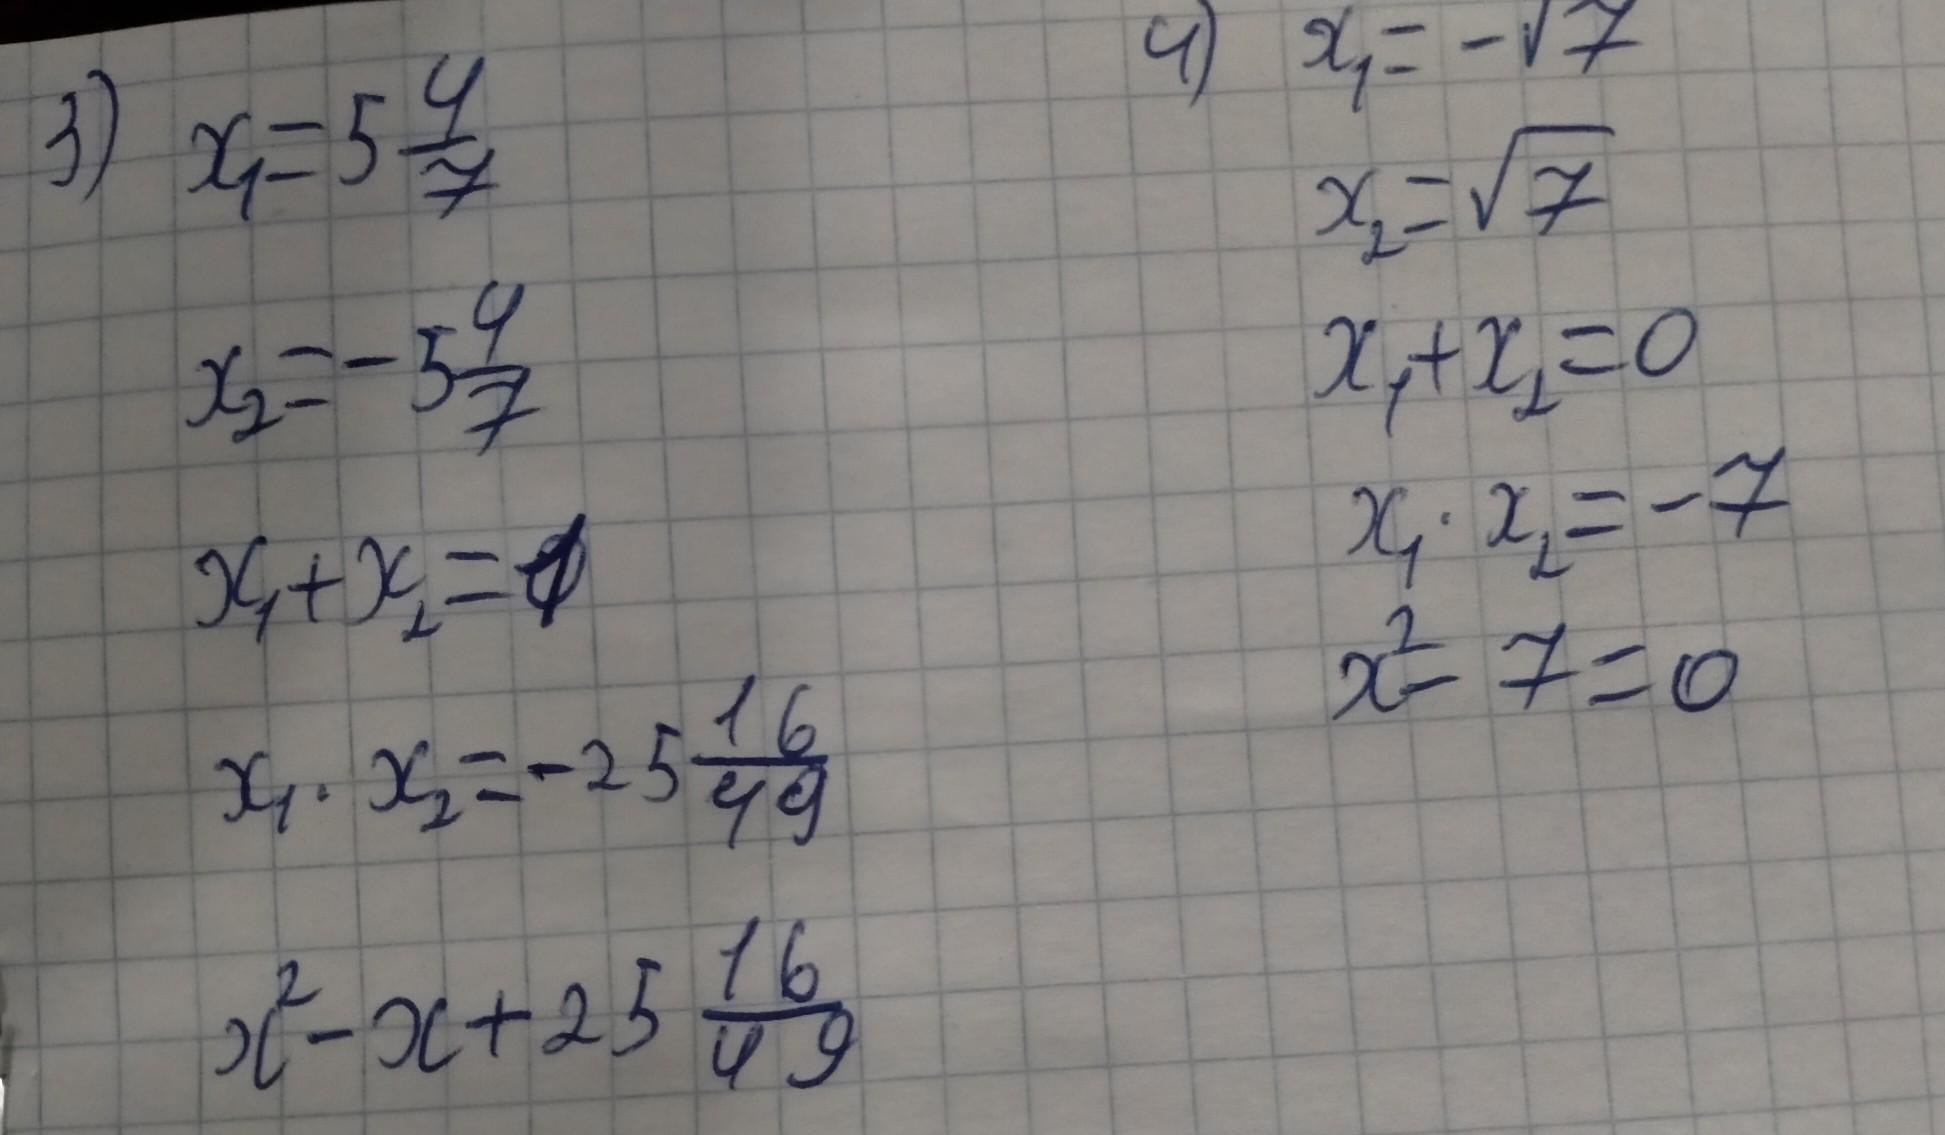 3) x₁ = 5 4/7
x₂ = - 5 4/7
x₁ + x₂ =
x₁ · x₂ = - 25 16/49
x² - x + 25 16/49
4) x₁ = - √7
x₂ = √7
x₁ + x₂ = 0
x₁ · x₂ = - 7
x² - 7 = 0